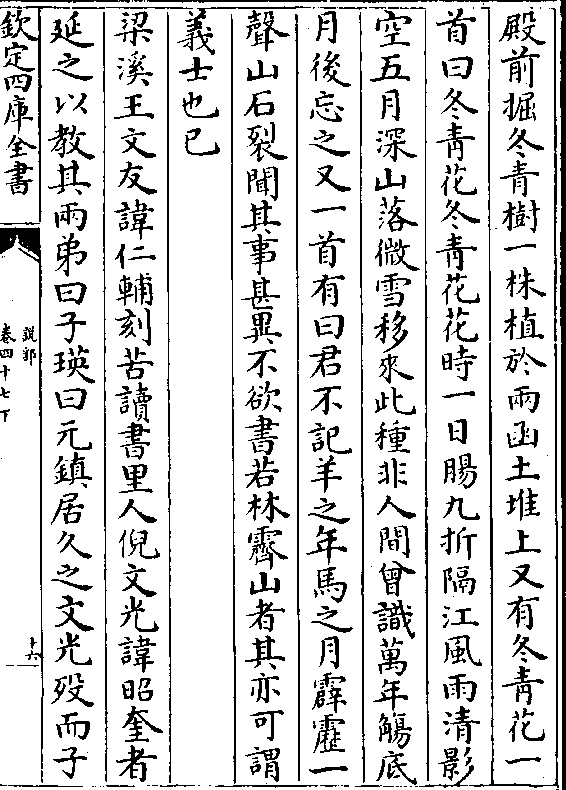 殿前掘冬青樹一株植於兩函土堆上又有冬青花一
首曰冬青花冬青花花時一日腸九折隔江風雨清影
空五月深山落微雪移來此種非人間曾識萬年觴底
月後忘之又一首有曰君不記羊之年馬之月霹靂一
聲山石裂聞其事甚異不欲書若林霽山者其亦可謂
義士也已
梁溪王文友諱仁輔刻苦讀書里人倪文光諱昭奎者
延之以教其兩弟曰子瑛曰元鎮居久之文光歿而子
欽定四庫全書
說郛
卷四十七下
十六